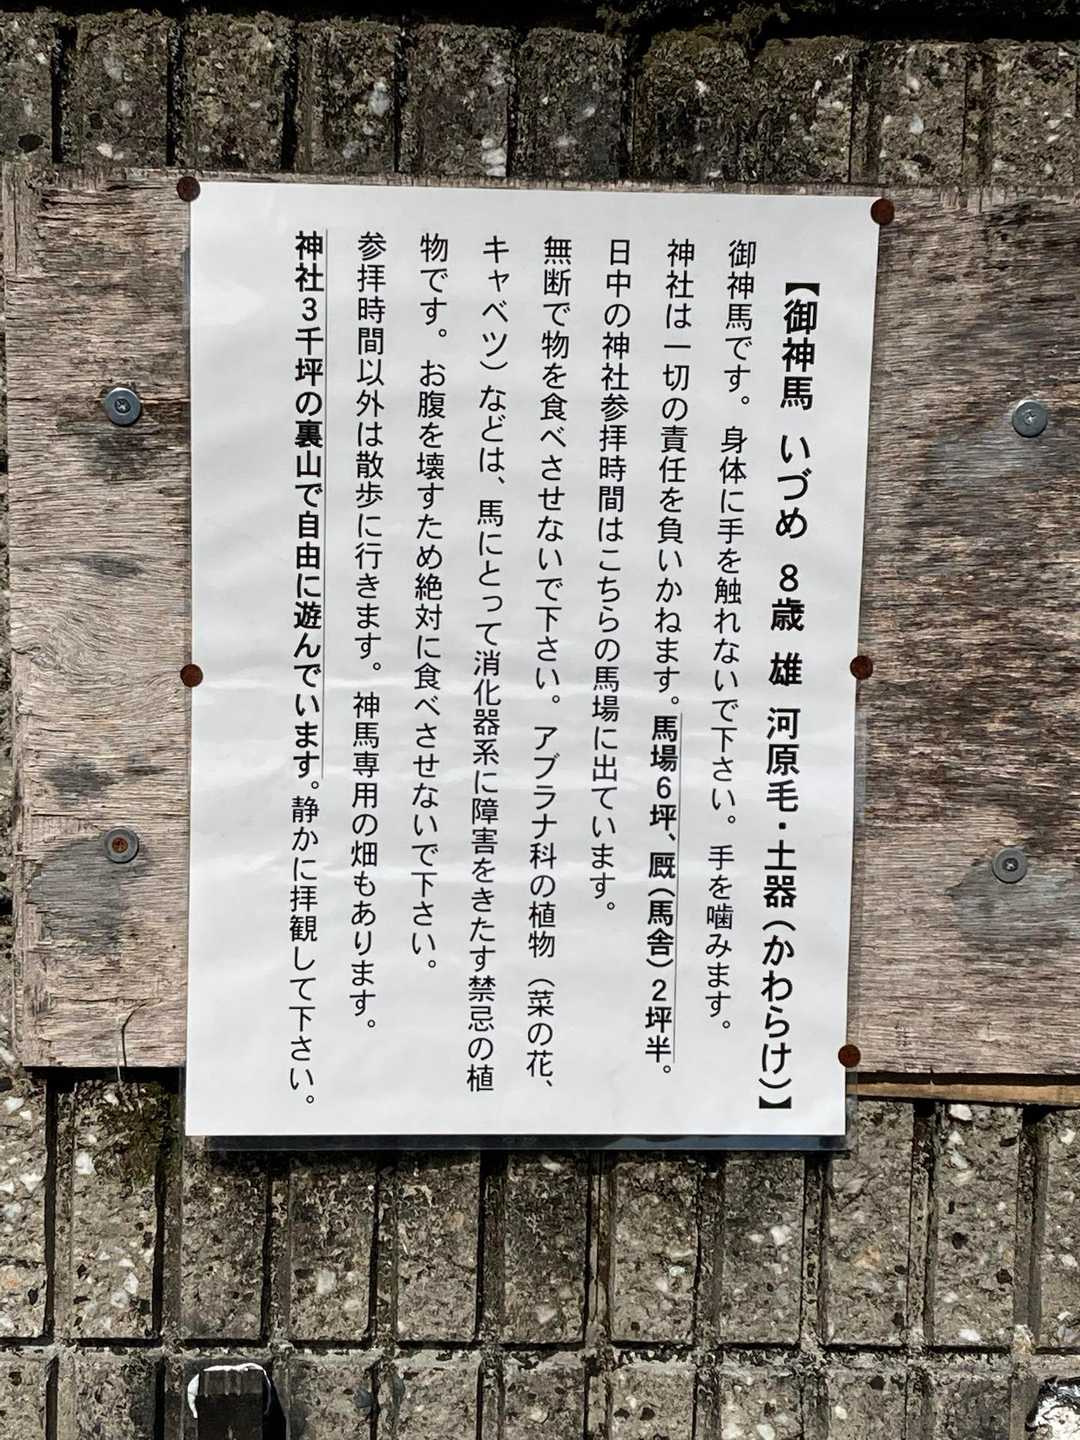 【御神馬 いづめ 8歳 雄 河原毛・土器(かわらけ)】
御神馬です。身体に手を触れないで下さい。手を噛みます。
神社は一切の責任を負いかねます。馬場6坪、厩(馬舎)2坪半。
日中の神社参拝時間はこちらの馬場に出ています。
無断で物を食べさせないで下さい。アブラナ科の植物（菜の花、
キャベツ）などは、馬にとって消化器系に障害をきたす禁忌の植
物です。お腹を壊すため絶対に食べさせないで下さい。
参拝時間以外は散歩に行きます。神馬専用の畑もあります。
神社3千坪の裏山で自由に遊んでいます。静かに拝観して下さい。